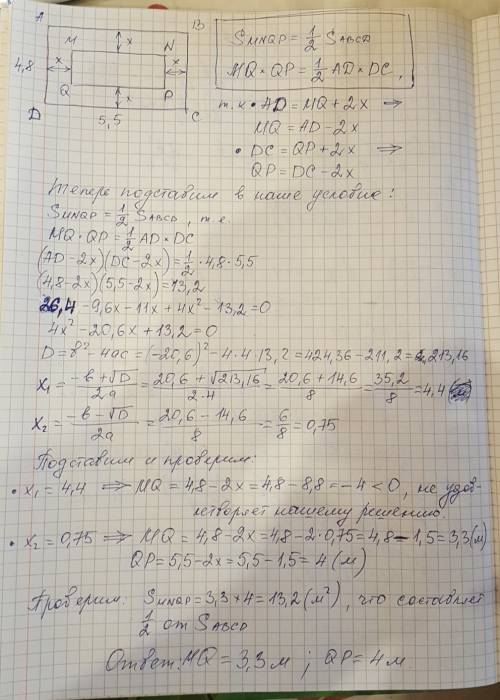 A
B
M
N
x
x
x
x
4,8
Q
P
D
C
5,5
S_MNQP = 1/2 S_ABCD
MQ × QP = 1/2 AD × DC,
т.к • AD = MQ + 2x ⟹
MQ = AD − 2x
• DC = QP + 2x ⟹
QP = DC − 2x
Теперь подставим в наше условие:
S_MNQP = 1/2 S_ABCD, т.е.
MQ · QP = 1/2 AD × DC
(AD − 2x)(DC − 2x) = 1/2 · 4,8 · 5,5
(4,8 − 2x)(5,5 − 2x) = 13,2
26,4 − 9,6x − 11x + 4x² − 13,2 = 0
4x² − 20,6x + 13,2 = 0
D = b² − 4ac = (−20,6)² − 4 · 4 · 13,2 = 424,36 − 211,2 = 213,16
x₁ = (−b + √D)/2a = (20,6 + √213,16)/(2·4) = (20,6 + 14,6)/8 = 35,2/8 = 4,4
x₂ = (−b − √D)/2a = (20,6 − 14,6)/8 = 6/8 = 0,75
Подставим и проверим:
• x₁ = 4,4 ⟹ MQ = 4,8 − 2x = 4,8 − 8,8 = −4 < 0, не удов-
летворяет нашему решению.
• x₂ = 0,75 ⟹ MQ = 4,8 − 2x = 4,8 − 2·0,75 = 4,8 − 1,5 = 3,3 (м)
QP = 5,5 − 2x = 5,5 − 1,5 = 4 (м)
Проверим: S_MNQP = 3,3 × 4 = 13,2 (м²), что составляет
1/2 от S_ABCD
Ответ: MQ = 3,3 м ; QP = 4 м